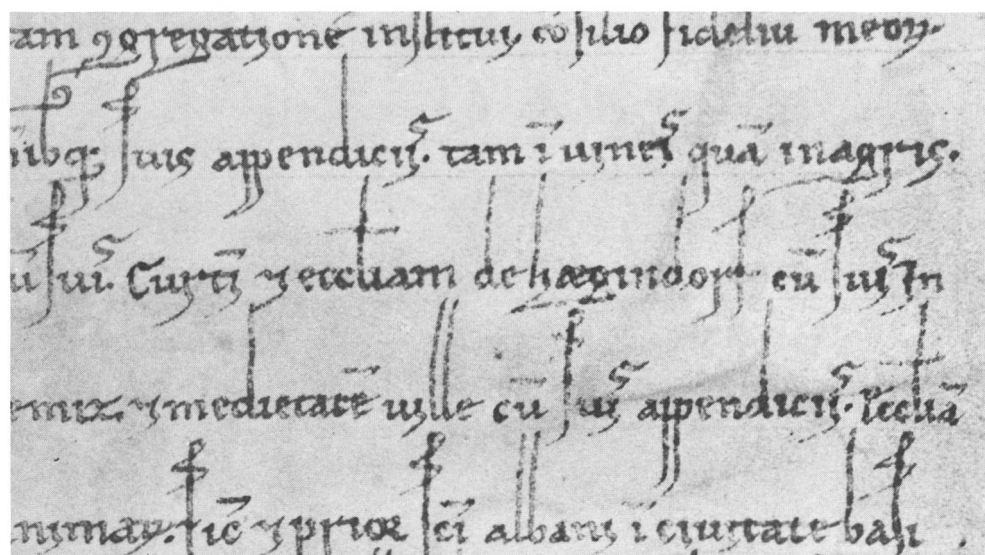 tam ꝯgregationē institui, cōsilio fidelium meoꝝ.
nibꝗ; suis appendiciis. tam ī uineis quā in agris.
ū suis. Curtī ⁊ eccłiam de hægindorf cū suis In
⁊ medietatē uillę cū suis appendiciis. Ęccłiā
sic ⁊ prior sc̄i albani ī ciuitate basi